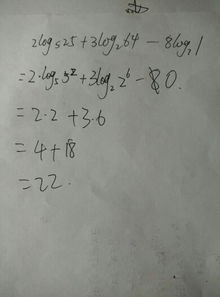 2log₅25+3log₂64-8log₂1
=2·log₅5²+3log₂2⁶-80.
=2·2+3·6
=4+18
=22.